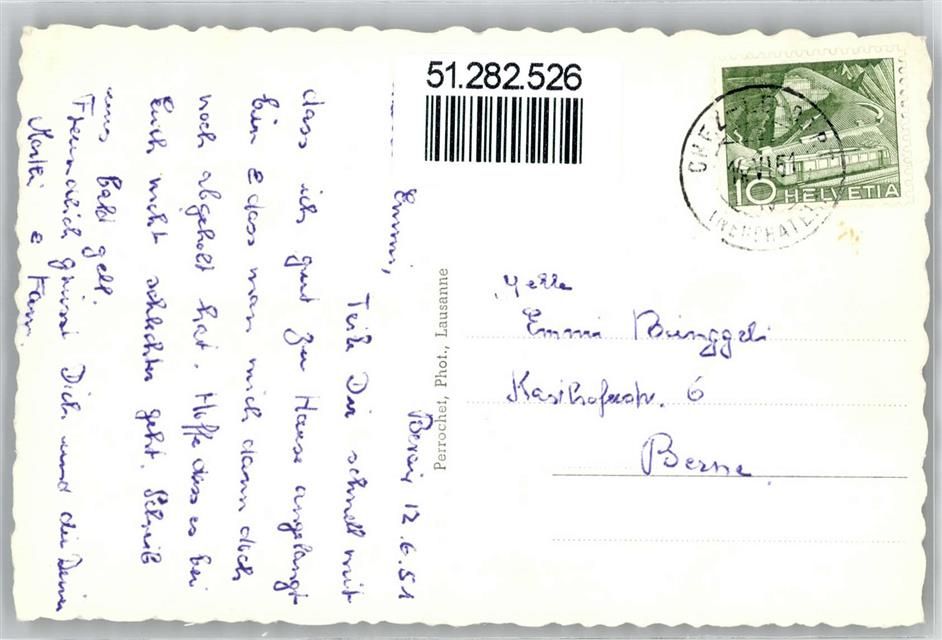 51.282.526
10 HELVETIA
Bevaix 12.6.51
Emmi,
Teile Dir schnell mit
dass ich gut zu Hause angelangt
bin & dass man mich dann doch
noch abgeholt hat. Hoffe dass es bei
Euch nicht schlechter geht. Schreib
uns bald gell.
Freundlich grüsst Dich und die Deinen
& Fam.
Perrochet, Phot., Lausanne
Melle
Emmi Binggeli
Kasthoferstr. 6
Berne